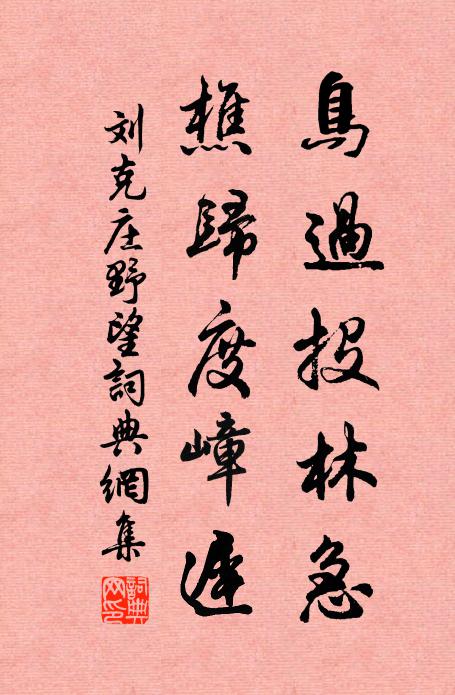 鳥過投林急
樵歸度嶂遲
刘克庄野望詞典網集
詞典网印